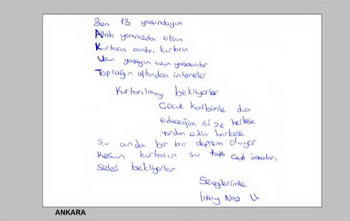 Ben 13 yaşındayım
Allah yanınızda olsun
Kurtarın canları kurtarın
Uzun yaşayın uzun yaşasınlar
Toprağın altından inlemeler
Kurtarılmayı bekliyorlar
Çocuk kalbimle dua
edeceğim size herkese
yardım edin herkese
Şu anda bir bir deprem oluyor
Koşun kurtarın şu canlı insanları,
Sizleri bekliyorlar
Sevgilerimle
İlkay Naz U.
ANKARA